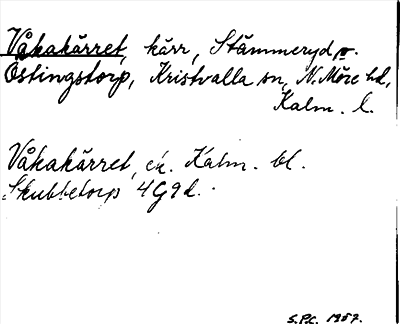 Våkakärret, kärr, Stämmeryd o.
Östingstorp, Kristvalla sn, N. Möre hd,
Kalm. l.
Våkakärret, ek. Kalm. bl.
Skubbetorp 4G9d.
S.P.C. 1957.